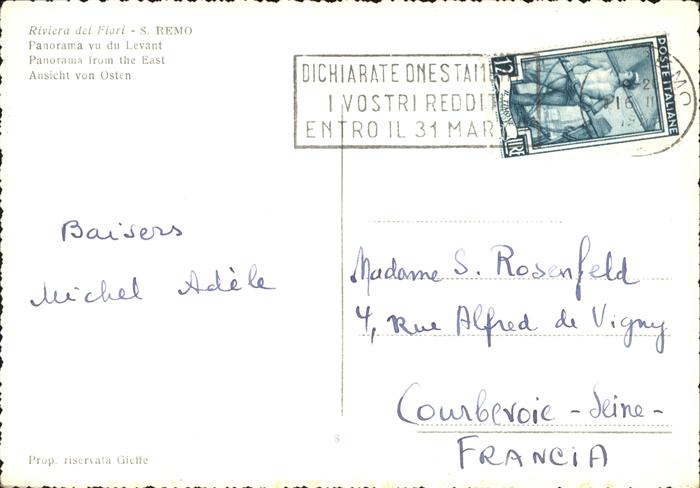 Riviera dei Fiori - S. REMO
Panorama vu du Levant
Panorama from the East
Ansicht von Osten
DICHIARATE ONESTAM
I VOSTRI REDDITI
ENTRO IL 31 MAR
12
POSTE ITALIANE
LIRE
Baisers
Michel Adèle
Madame S. Rosenfeld
4, Rue Alfred de Vigny
Courbevoie - Seine -
FRANCIA
8
Prop. riservata Gieffe